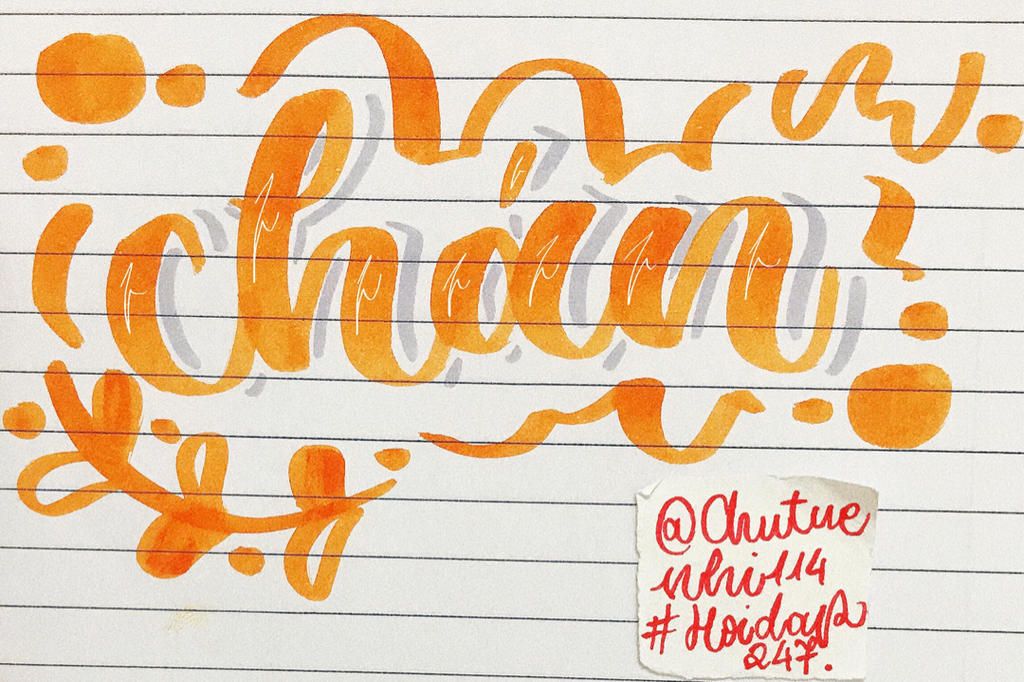 chán
@Chutue
nhi114
#Hoidap
247.